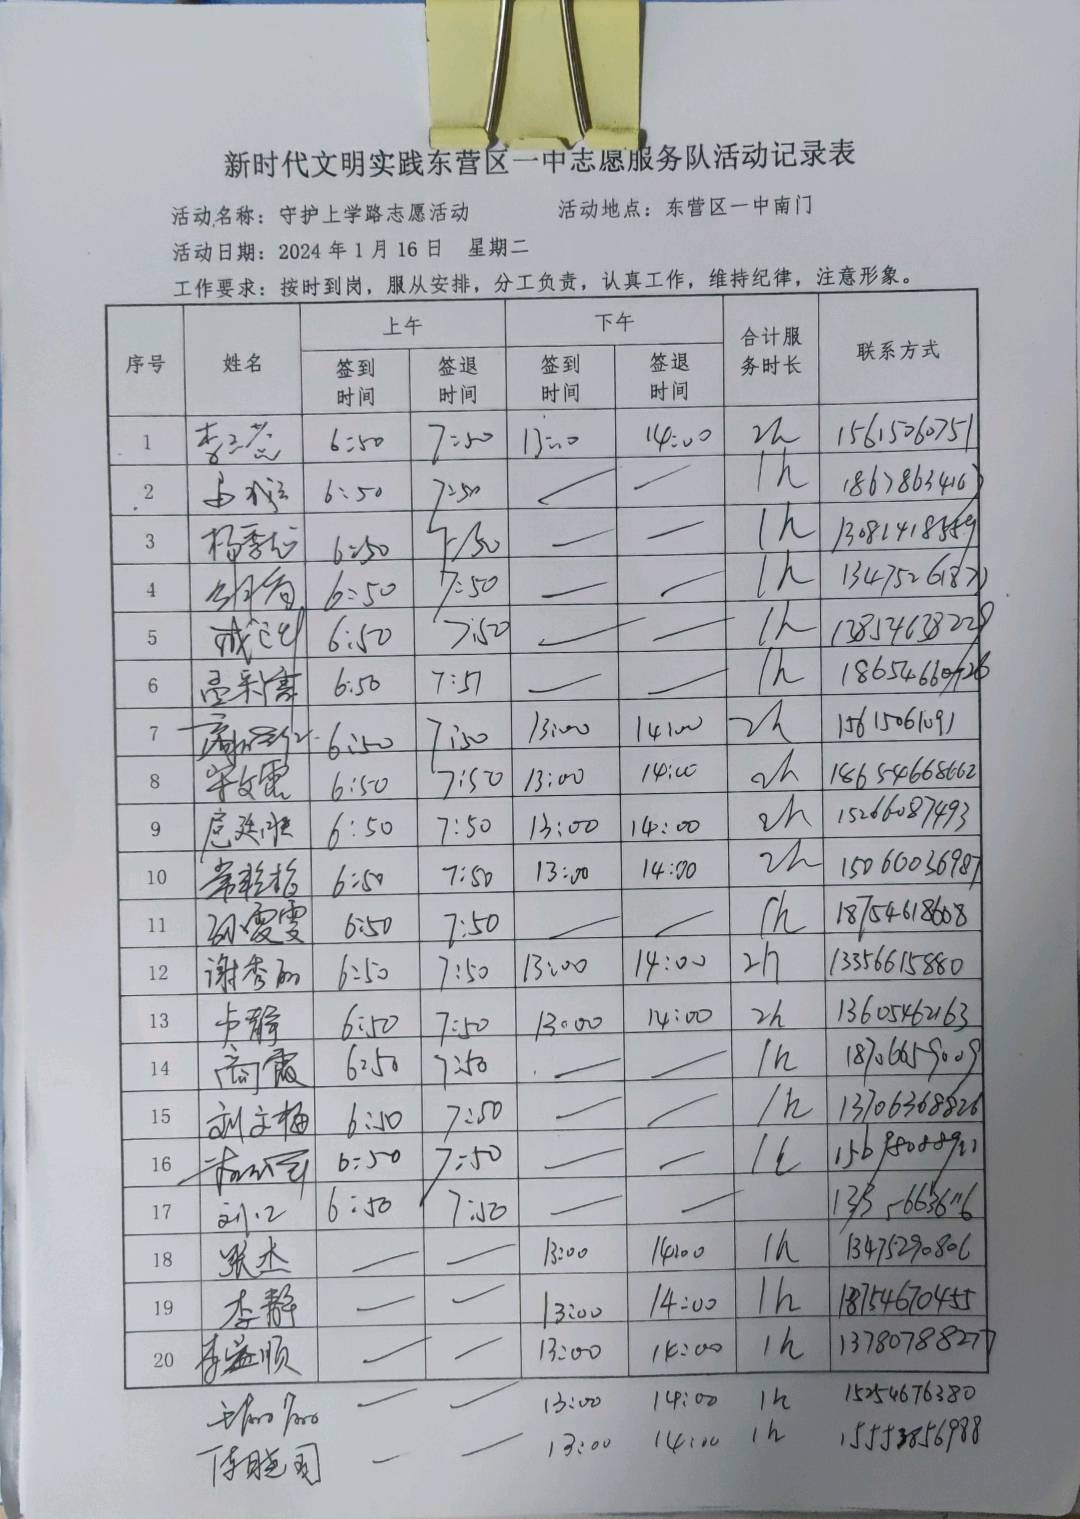 新时代文明实践东营区一中志愿服务队活动记录表
活动名称：守护上学路志愿活动 活动地点：东营区一中南门
活动日期：2024年1月16日 星期二
工作要求：按时到岗，服从安排，分工负责，认真工作，维持纪律，注意形象。
序号 姓名 上午 下午 合计服务时长 联系方式
签到时间 签退时间 签到时间 签退时间
1 6:50 7:50 13:00 14:00 2h 15615060751
2 6:50 7:50 — — 1h
3 6:50 7:50 — — 1h 13081418559
4 6:50 7:50 — — 1h
5 6:50 7:50 — — 1h 13854638228
6 6:50 7:51 — — 1h
7 6:50 7:50 13:00 14:00 2h 15615061091
8 宋文霞 6:50 7:50 13:00 14:00 2h 18654668662
9 6:50 7:50 13:00 14:00 2h 15266087493
10 常彩梅 6:50 7:50 13:00 14:00 2h 15060036987
11 孙雯雯 6:50 7:50 — — 1h 18754618608
12 谢秀丽 6:50 7:50 13:00 14:00 2h 13356615880
13 6:50 7:50 13:00 14:00 2h 13605462163
14 商霞 6:50 7:50 — — 1h 18706659009
15 刘文梅 6:50 7:50 — — 1h 13706368826
16 6:50 7:50 — —
17 6:50 7:50 — —
18 张杰 — — 13:00 14:00 1h 13475290806
19 李静 — — 13:00 14:00 1h 18754670455
20 — — 13:00 14:00 1h 13780788277
— — 13:00 14:00 1h 15254676380
— — 13:00 14:00 1h 15553856988